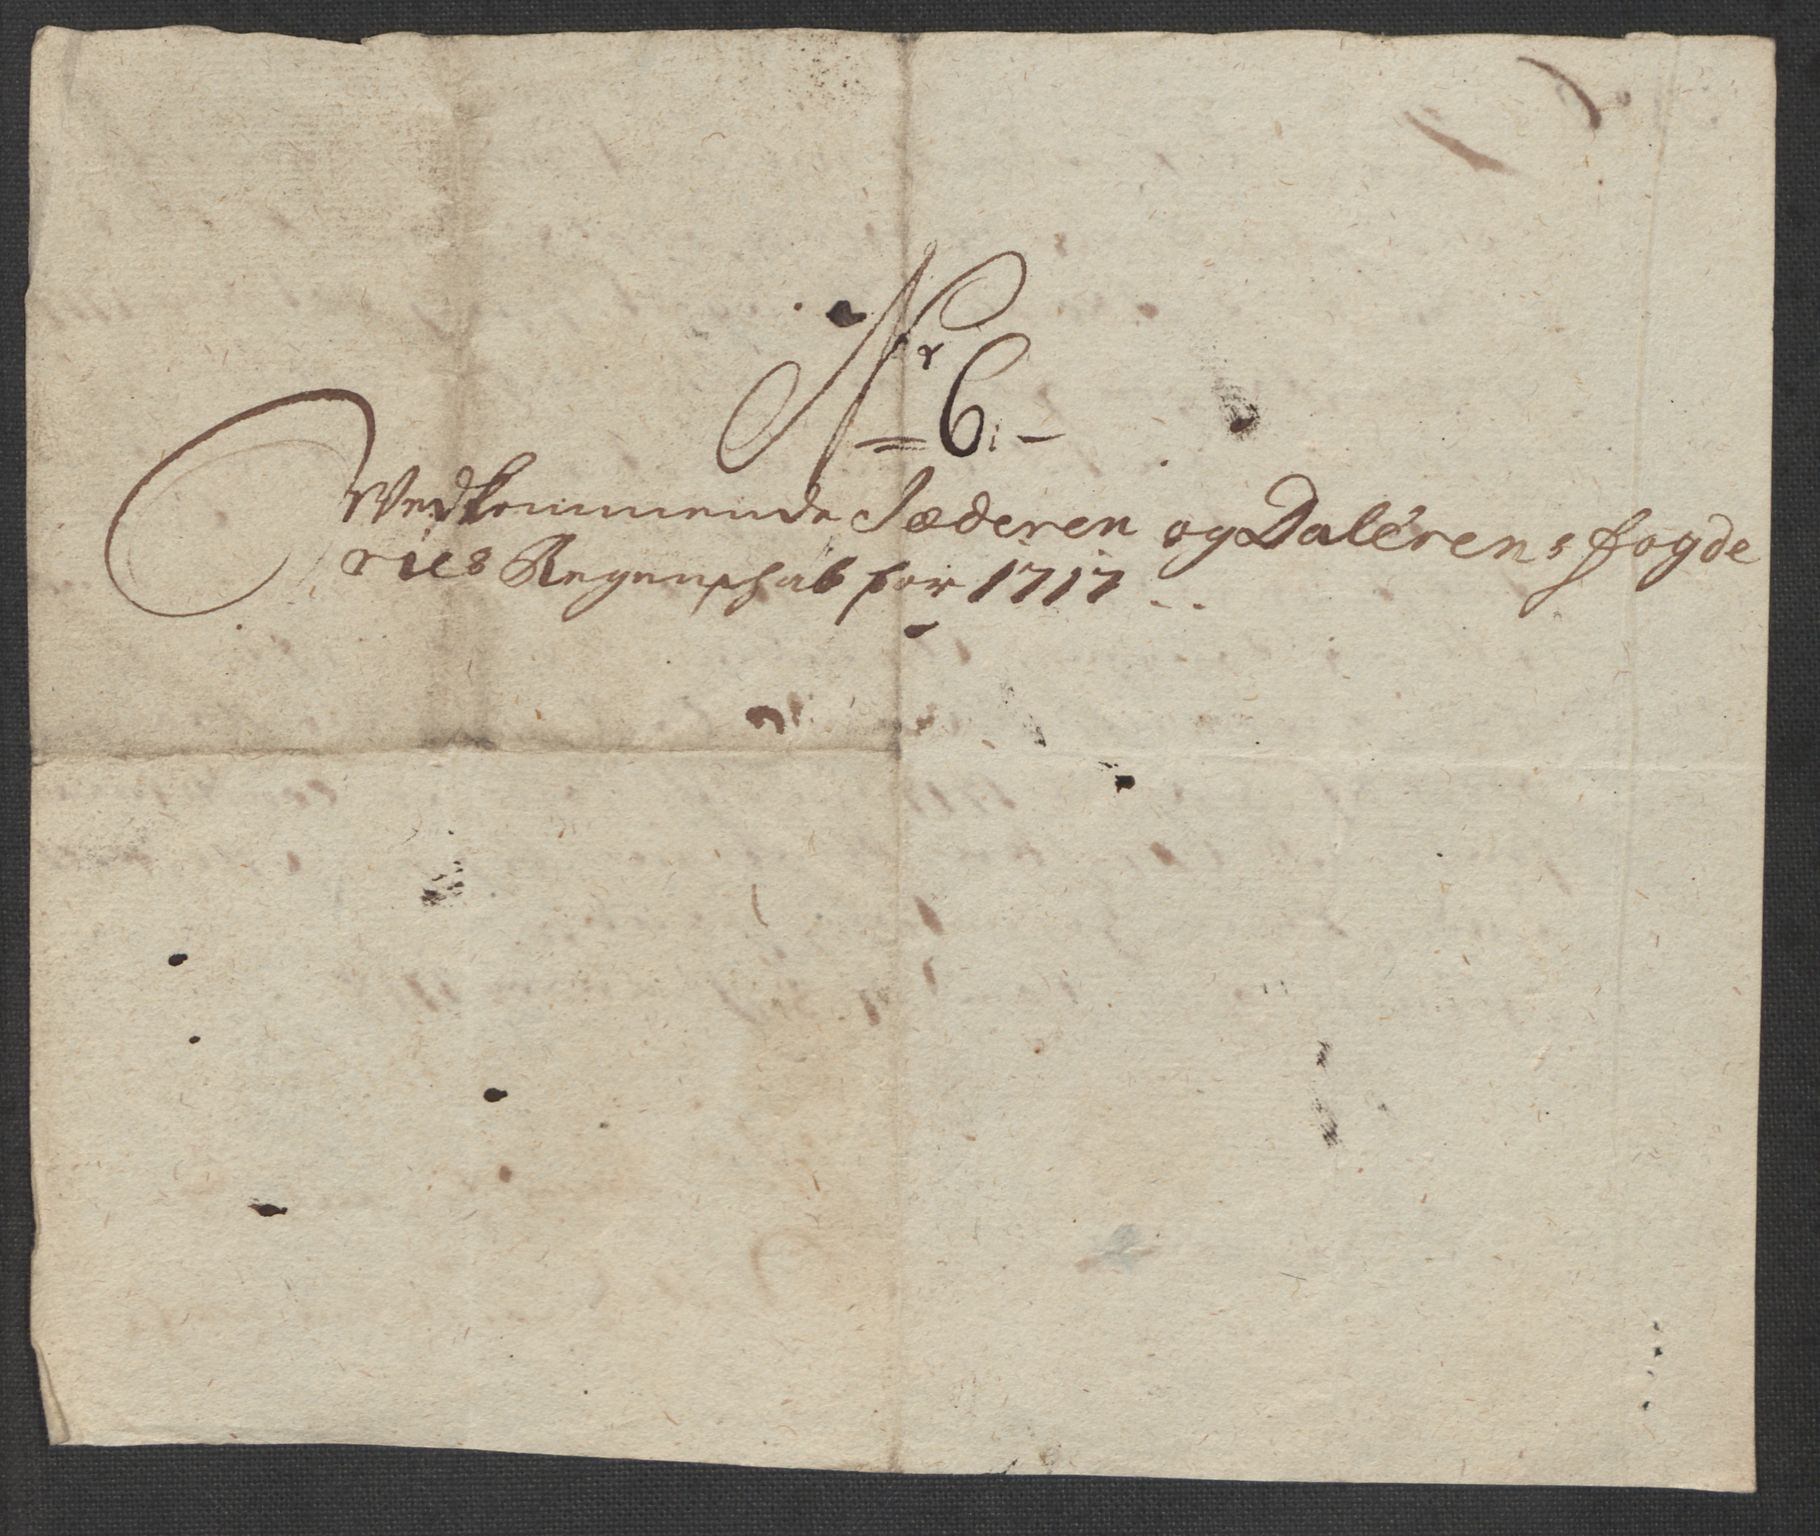 Nr 6:-
Vedkommende Jæderen og Dalerens fogde
ries Regenshab for 1717